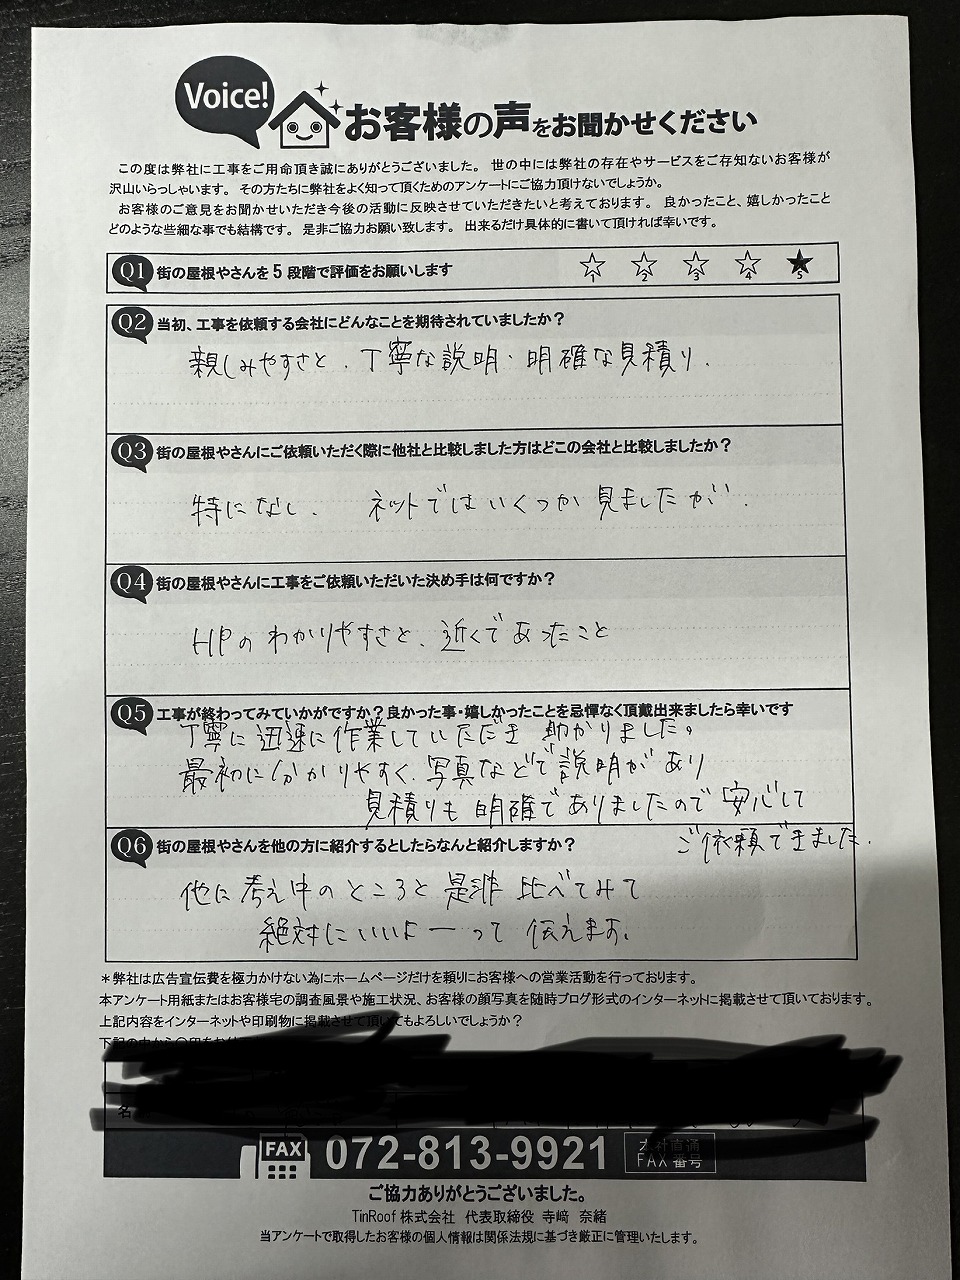 Voice!
お客様の声をお聞かせください
この度は弊社に工事をご用命頂き誠にありがとうございました。世の中には弊社の存在やサービスをご存知ないお客様が
沢山いらっしゃいます。その方たちに弊社をよく知って頂くためのアンケートにご協力頂けないでしょうか。
お客様のご意見をお聞かせいただき今後の活動に反映させていただきたいと考えております。良かったこと、嬉しかったこと
どのような些細な事でも結構です。是非ご協力お願い致します。出来るだけ具体的に書いて頂ければ幸いです。
Q1 街の屋根やさんを5段階で評価をお願いします ☆1 ☆2 ☆3 ☆4 ★5
Q2 当初、工事を依頼する会社にどんなことを期待されていましたか?
親しみやすさと、丁寧な説明・明確な見積り.
Q3 街の屋根やさんにご依頼いただく際に他社と比較しました方はどこの会社と比較しましたか?
特になし. ネットではいくつか見ましたが.
Q4 街の屋根やさんに工事をご依頼いただいた決め手は何ですか?
HPのわかりやすさと、近くであったこと
Q5 工事が終わってみていかがですか?良かった事・嬉しかったことを忌憚なく頂戴出来ましたら幸いです
丁寧に迅速に作業していただき助かりました。
最初に分かりやすく、写真などで説明があり
見積りも明確でありましたので安心して
ご依頼できました.
Q6 街の屋根やさんを他の方に紹介するとしたらなんと紹介しますか?
他に考え中のところと是非比べてみて
絶対にいいよーって伝えます。
*弊社は広告宣伝費を極力かけない為にホームページだけを頼りにお客様への営業活動を行っております。
本アンケート用紙またはお客様宅の調査風景や施工状況、お客様の顔写真を随時ブログ形式のインターネットに掲載させて頂いております。
上記内容をインターネットや印刷物に掲載させて頂いてもよろしいでしょうか?
FAX 072-813-9921 本社直通
FAX番号
ご協力ありがとうございました。
TinRoof株式会社 代表取締役 寺﨑 奈緒
当アンケートで取得したお客様の個人情報は関係法規に基づき厳正に管理いたします。